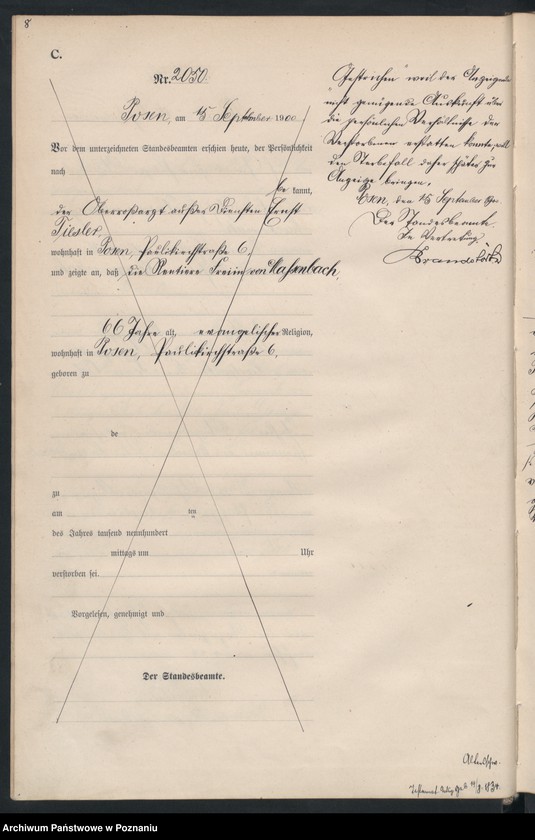 8
C.
Nr. 2050.
Posen, am 15 September 1900
Vor dem unterzeichneten Standesbeamten erschien heute, der Persönlichkeit
nach
be kannt,
der Oberroßarzt außer Diensten Ernst
Tiesler,
wohnhaft in Posen, Paulikirchstraße 6,
und zeigte an, daß die Rentiere Freiin von Massenbach,
66 Jahre alt, evangelischer Religion,
wohnhaft in Posen, Paulikirchstraße 6,
geboren zu
de
zu
am ten
des Jahres tausend neunhundert
mittags um Uhr
verstorben sei.
Vorgelesen, genehmigt und
Der Standesbeamte.
Gestrichen weil der Anzeigende
nicht genügende Auskunft über
die persönlichen Verhältnisse der
Verstorbenen erstatten konnte,
den Sterbefall daher später zur
Anzeige bringen.
Posen, den 15 September
Der Standesbeamte.
In Vertretung
Archiwum Państwowe w Poznaniu